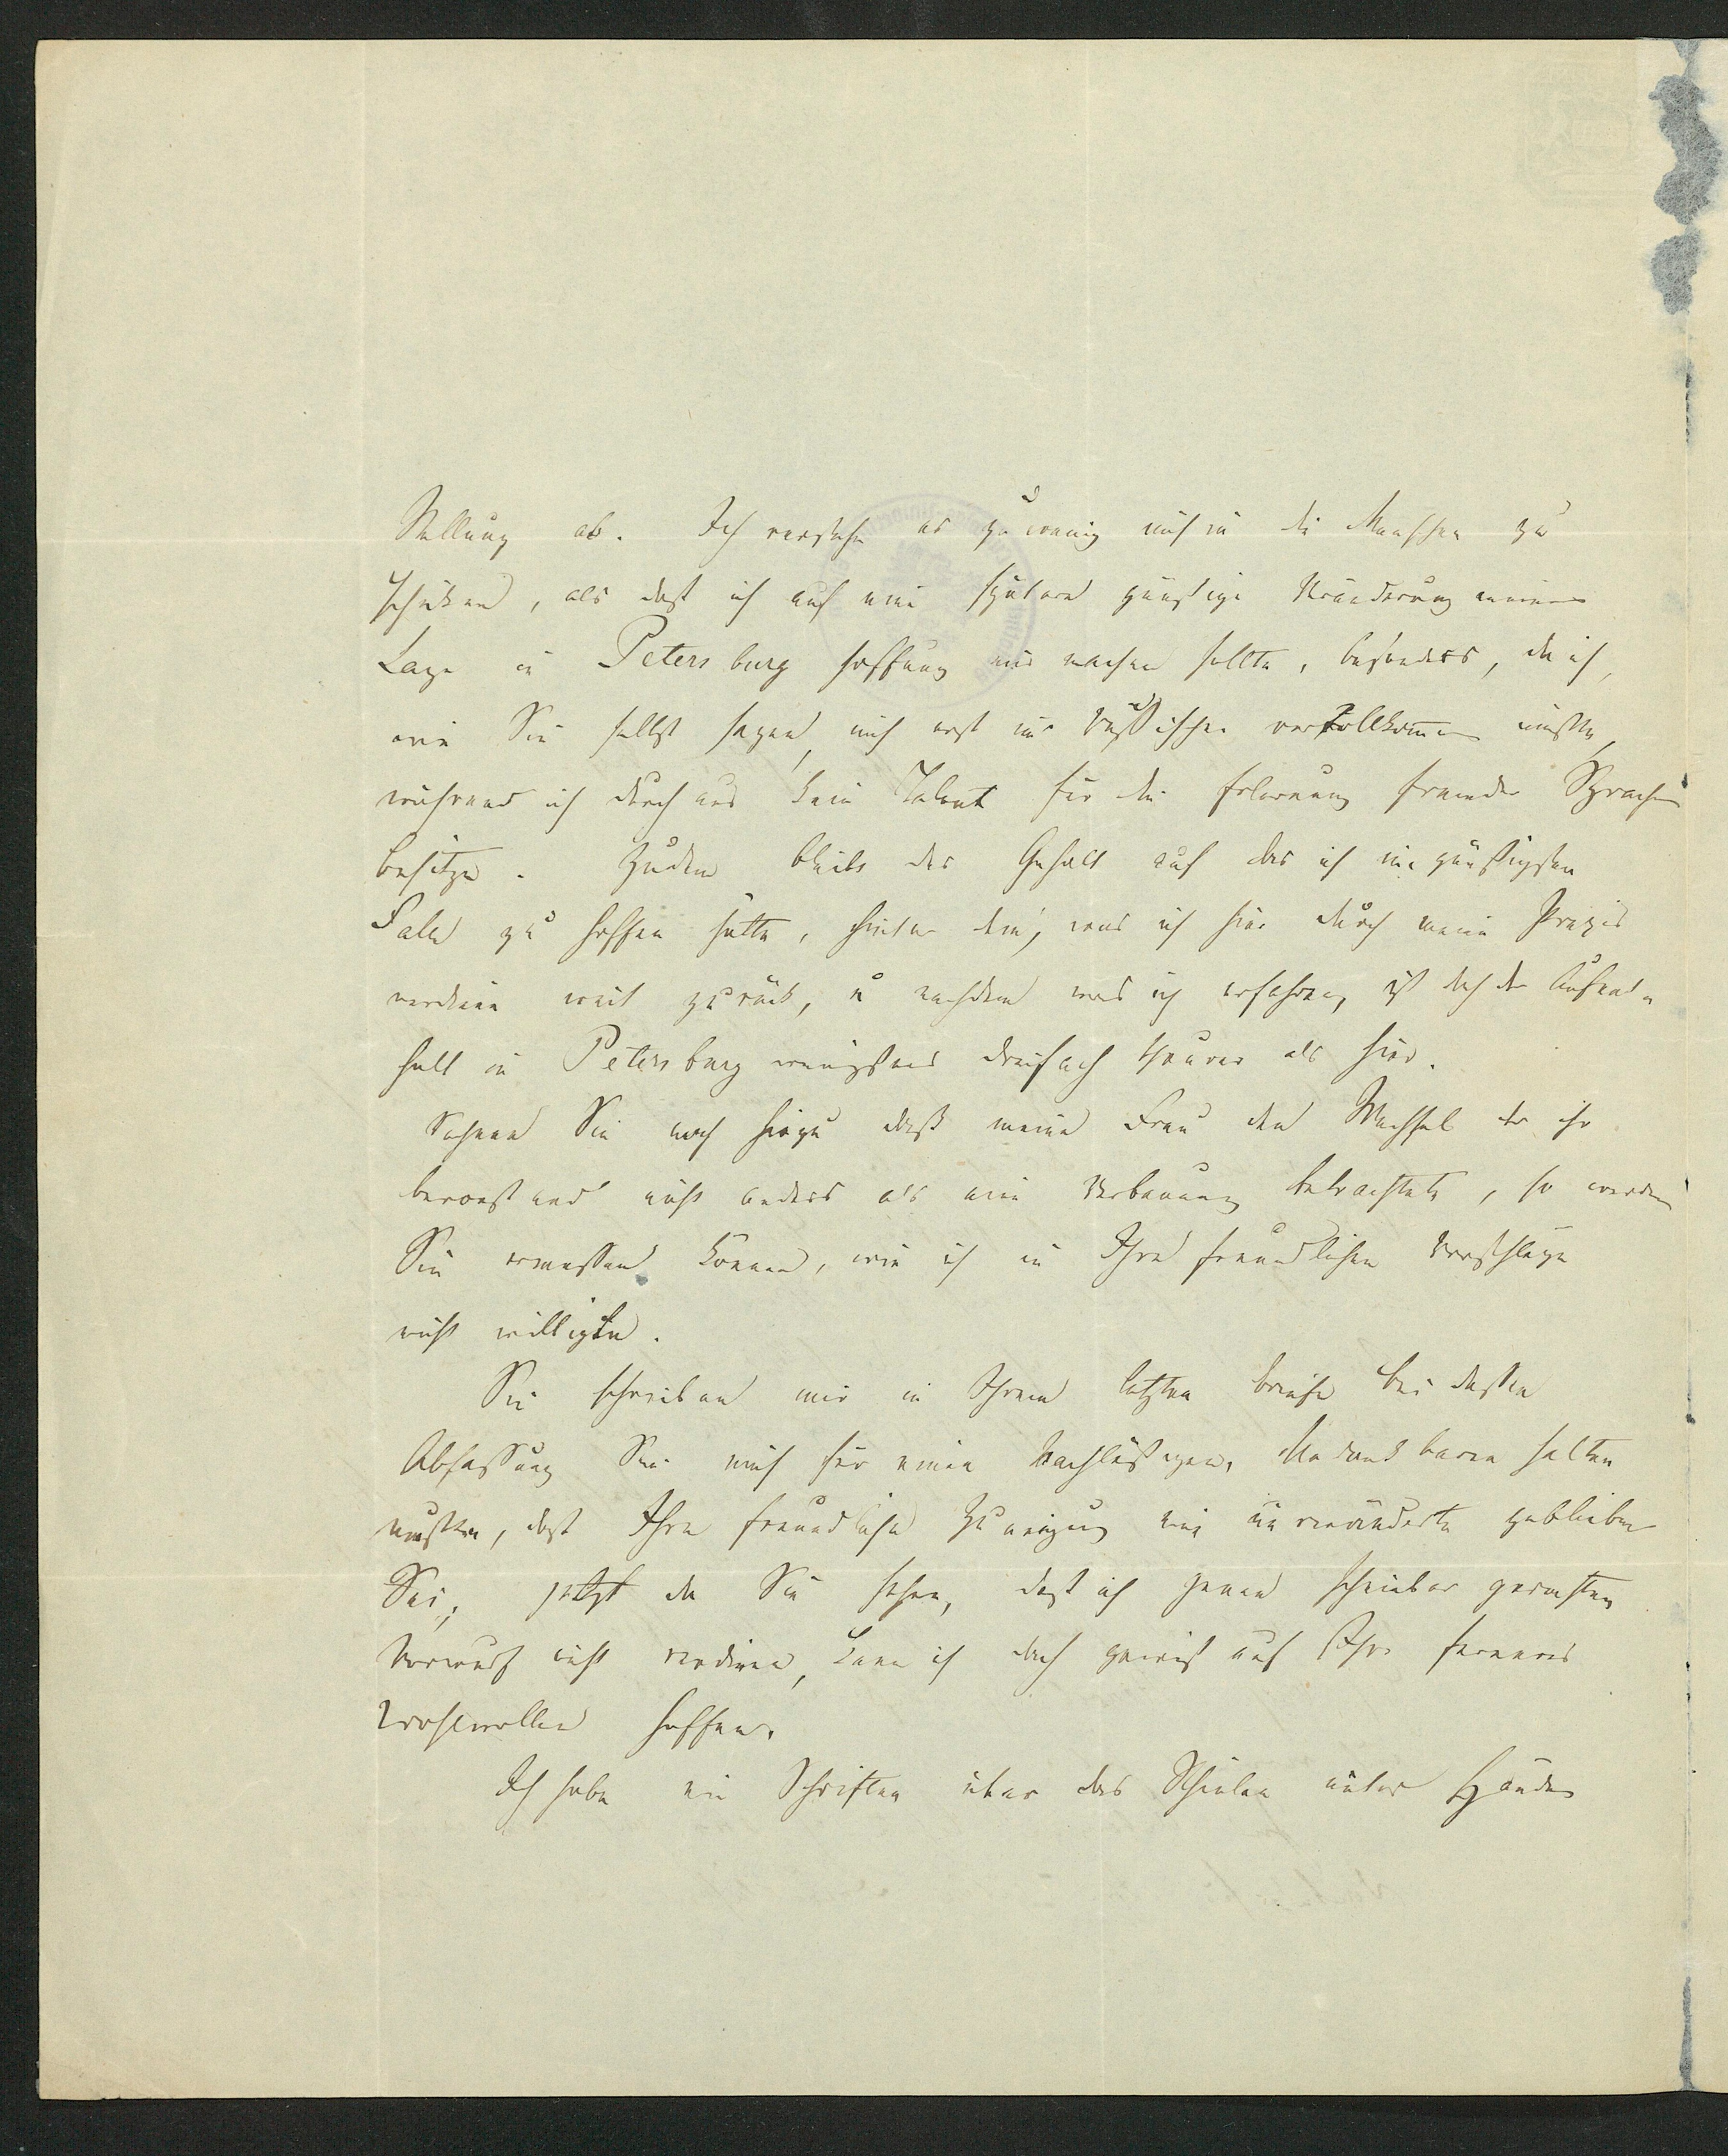 Stellung ab. Ich verstehe es zu wenig mich in die Menschen zu
schicken, als dast ich auf eine spätere günstige Veränderung meiner
Lage in Petersburg Hoffnung mir machen sollte, besonders, da ich,
wie Sie selbst sagen, mich erst im Russischen vervollkommen müsste,
während ich durchaus kein Talent für die Erlernung fremder Sprachen
besitze. Zudem bleibt der Gehalt auf das ich im günstigsten
Falle zu hoffen hätte, hinter dem, was ich hier durch meine Praxis
verdiene weit zurück, u nachdem was ich erfahren, ist doch der Aufent-
halt in Petersburg wenigstens dreifach theurer als hier.
Nehmen Sie noch hiezu daß meine Frau den Wechsel der ihr
bevorstand nicht anders als eine Verbannung betrachtete, so werden
Sie ermessen können, wie ich in Ihre freundlichen Vorschläge
nicht willigte.
Sie schreiben mir in Ihrem letzten Briefe bei dessen
Abfassung Sie mich für einen Nachlässigen, Undankbaren halten
mussten, dast Ihre freundliche Zuneigung mir unverändert geblieben
Sei; jetzt da Sie sehen, dast ich jenen scheinbar gerechten
Vorwurf nicht verdiene, kann ich doch gewist auf Ihr ferneres
Wohlwollen hoffen.
Ich habe ein Schriften über das Schielen unter Händen